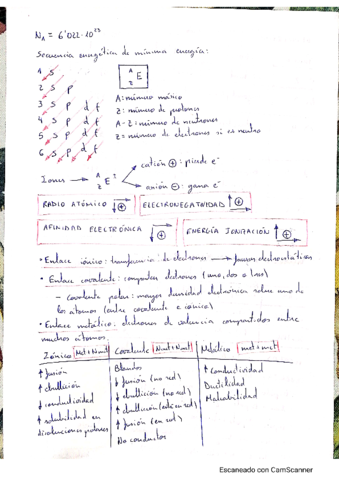 NA = 6'022·10²³
Secuencia energética de mínima energía:
1 s
2 s p
3 s p d f
4 s p d f
5 s p d f
6 s p d f
A Z E
A: número másico
Z: número de protones
A-Z: número de neutrones
Z = número de electrones si es neutro
Iones → A Z E
catión ⊕: pierde e⁻
anión ⊖: gana e⁻
RADIO ATÓMICO ↓⊕
ELECTRONEGATIVIDAD ↑⊕
AFINIDAD ELECTRÓNICA ↓⊕
ENERGÍA IONIZACIÓN ↑⊕
• Enlace iónico: transferencia de electrones → fuerzas electrostáticas
• Enlace covalente: comparten electrones (uno, dos o tres)
– Covalente polar: mayor densidad electrónica sobre uno de
los átomos (entre covalente e iónico)
• Enlace metálico: electrones de valencia compartidos entre
muchos átomos.
Iónico Met+Nmet Covalente Nmet+Nmet Metálico met+met
↑ fusión
↑ ebullición
↓ conductividad
↑ solubilidad en
disoluciones polares
Blandos
↓ fusión (no red)
↓ ebullición (no red)
↑ ebullición (está en red)
↑ fusión (en red)
No conductor
↑ conductividad
Ductilidad
Maleabilidad
Escaneado con CamScanner